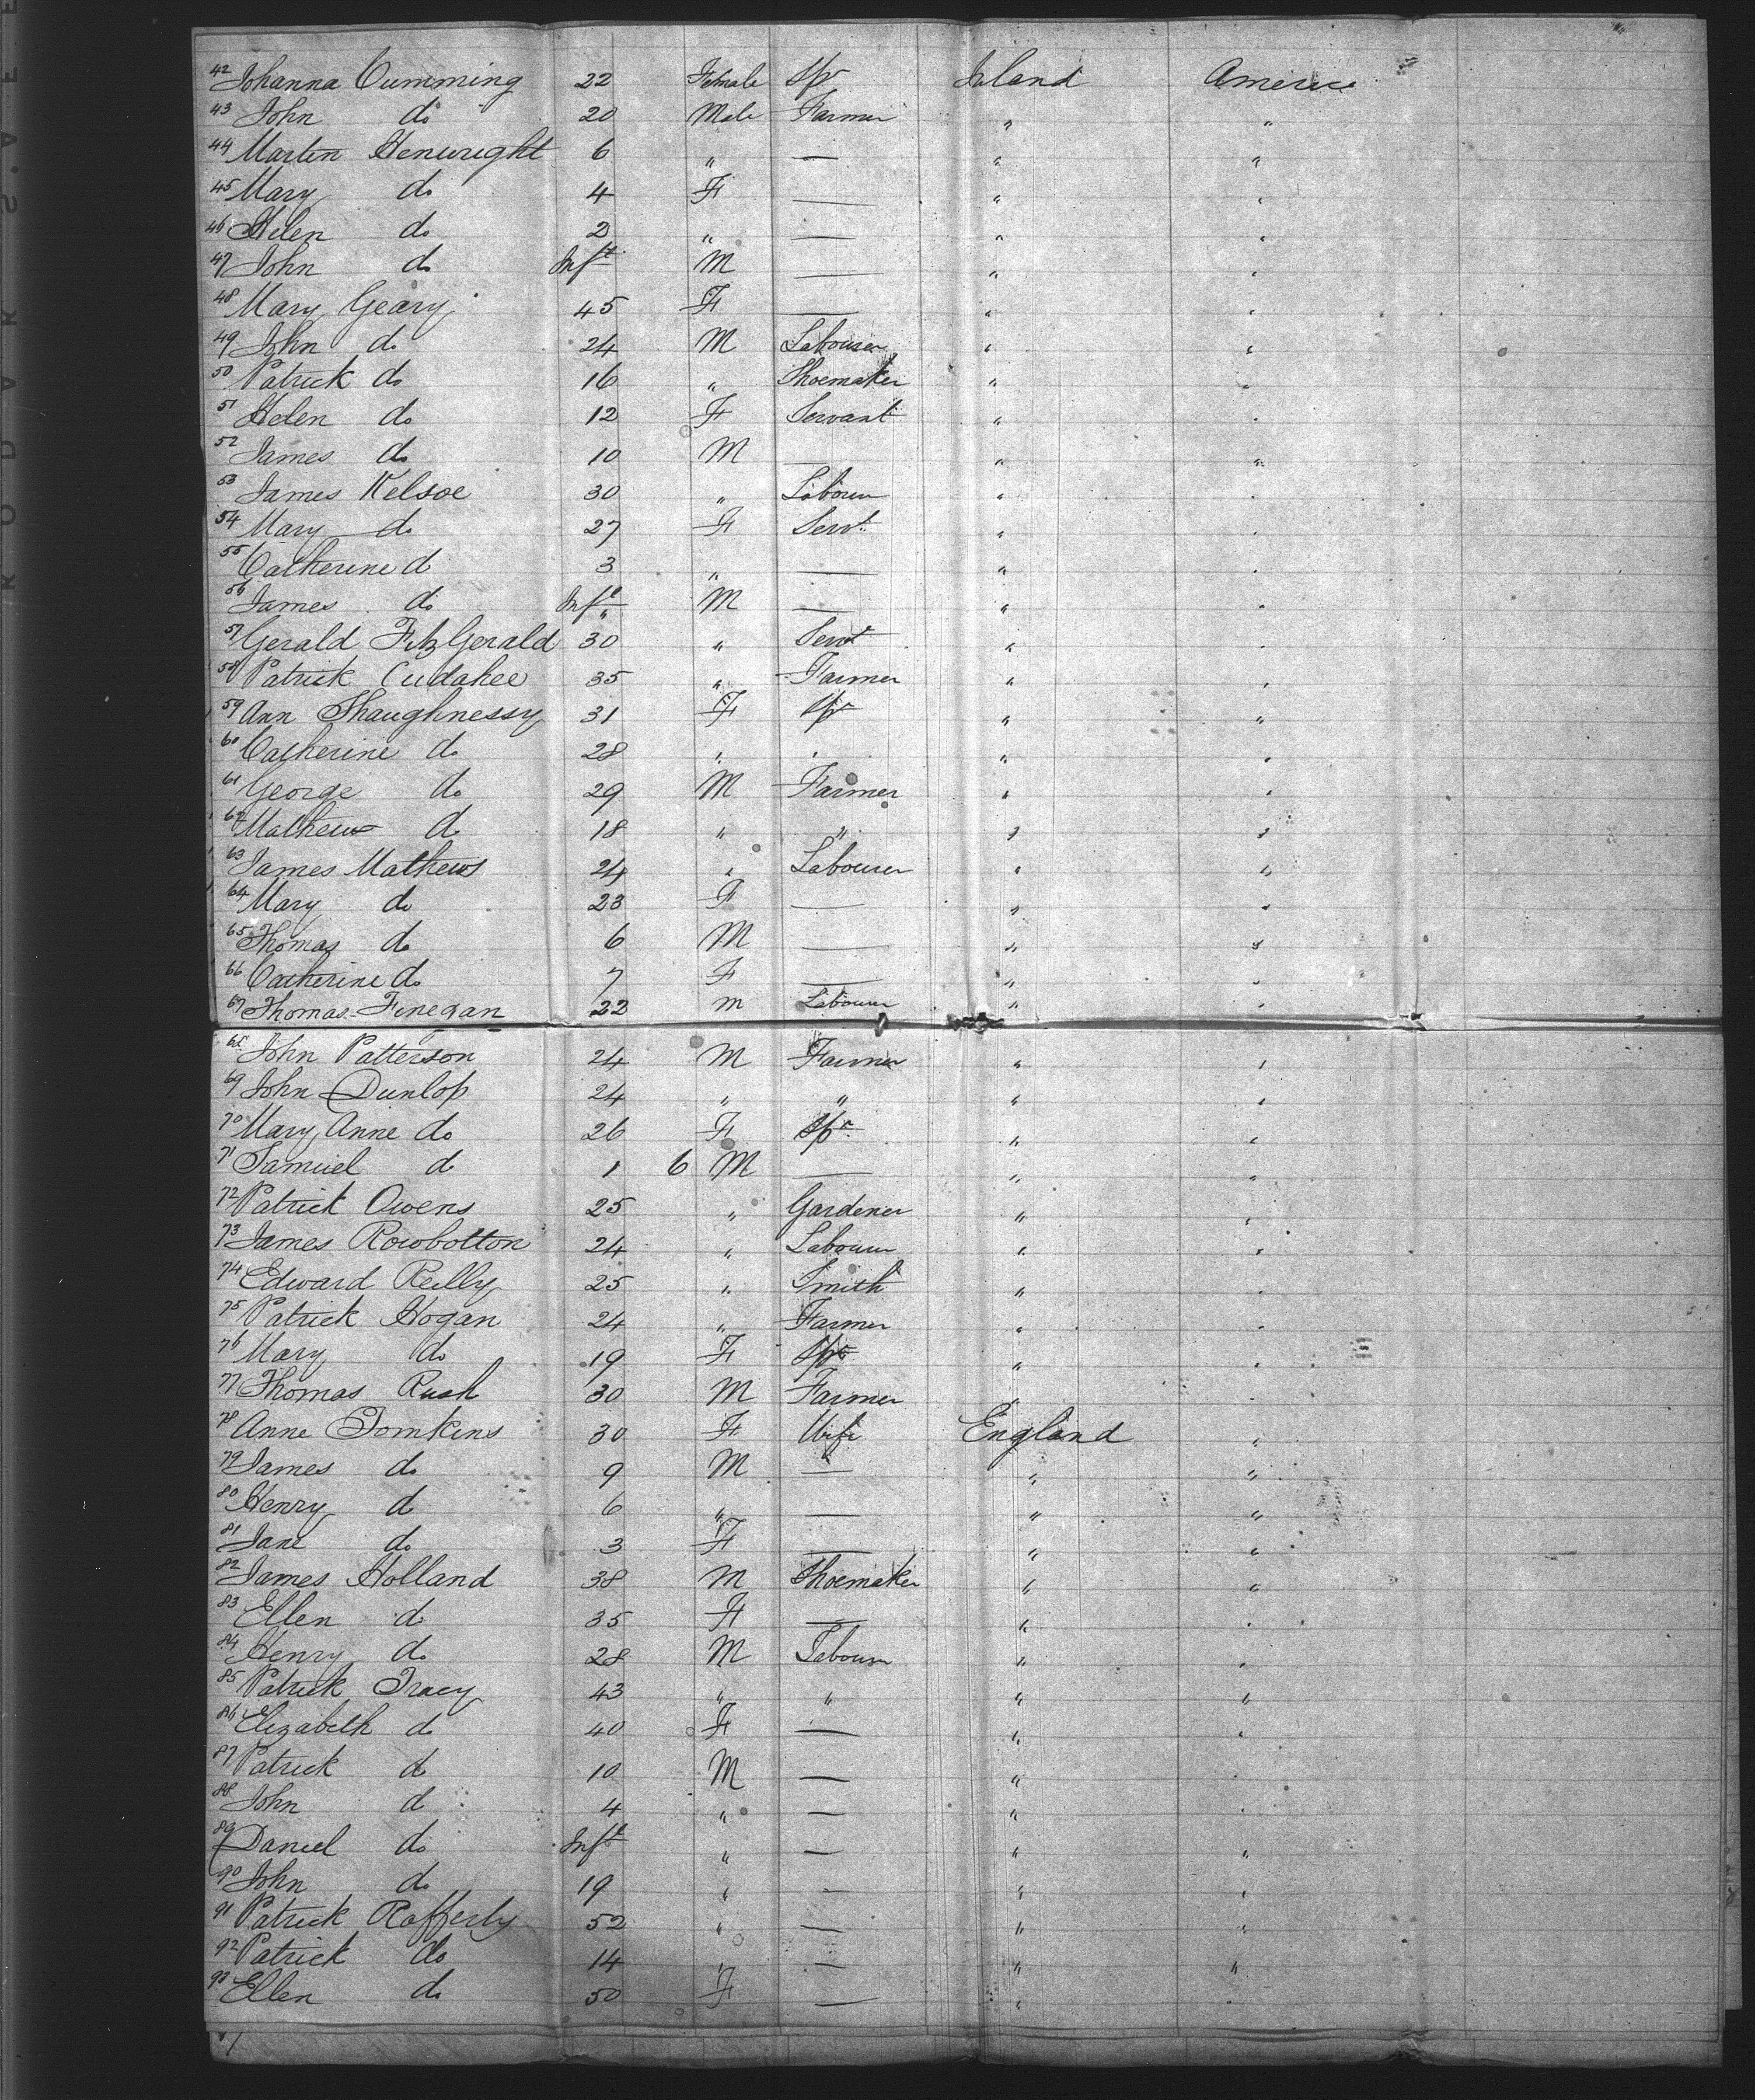 42 Johanna Cumming 22 Female Spr Ireland America
43 John do 20 Male Farmer " "
44 Martin Henwright 6 " — " "
45 Mary do 4 F — " "
46 Helen do 2 " — " "
47 John do Inft M — " "
48 Mary Geary 45 F — " "
49 John do 24 M Labourer " "
50 Patrick do 16 " Shoemaker " "
51 Helen do 12 F Servant " "
52 James do 10 M — " "
53 James Kelsoe 30 " Labourer " "
54 Mary do 27 F Servt " "
55 Catherine do 3 " — " "
56 James do Inft M — " "
57 Gerald FitzGerald 30 " Servt " "
58 Patrick Cudahee 35 " Farmer " "
59 Ann Shaughnessy 31 F Spr " "
60 Catherine do 28 " " " "
61 George do 29 M Farmer " "
62 Mathew do 18 " " " "
63 James Mathews 24 " Labourer " "
64 Mary do 23 F — " "
65 Thomas do 6 M — " "
66 Catherine do 7 F — " "
67 Thomas Finegan 22 M Labourer " "
68 John Patterson 24 M Farmer " "
69 John Dunlop 24 " " " "
70 Mary Anne do 26 F Spr " "
71 Samuel do 1 6 M — " "
72 Patrick Owens 25 " Gardener " "
73 James Rowbotton 24 " Labourer " "
74 Edward Reilly 25 " Smith " "
75 Patrick Hogan 24 " Farmer " "
76 Mary do 19 F Spr " "
77 Thomas Rush 30 M Farmer " "
78 Anne Tomkins 30 F Wife England "
79 James do 9 M — " "
80 Henry do 6 " — " "
81 Jane do 3 F — " "
82 James Holland 38 M Shoemaker " "
83 Ellen do 35 F — " "
84 Henry do 28 M Labourer " "
85 Patrick Tracy 43 " " " "
86 Elizabeth do 40 F — " "
87 Patrick do 10 M — " "
88 John do 4 " — " "
89 Daniel do Inft " — " "
90 John do 19 " — " "
91 Patrick Rafferty 52 " — " "
92 Patrick do 14 " — " "
93 Ellen do 50 F — " "